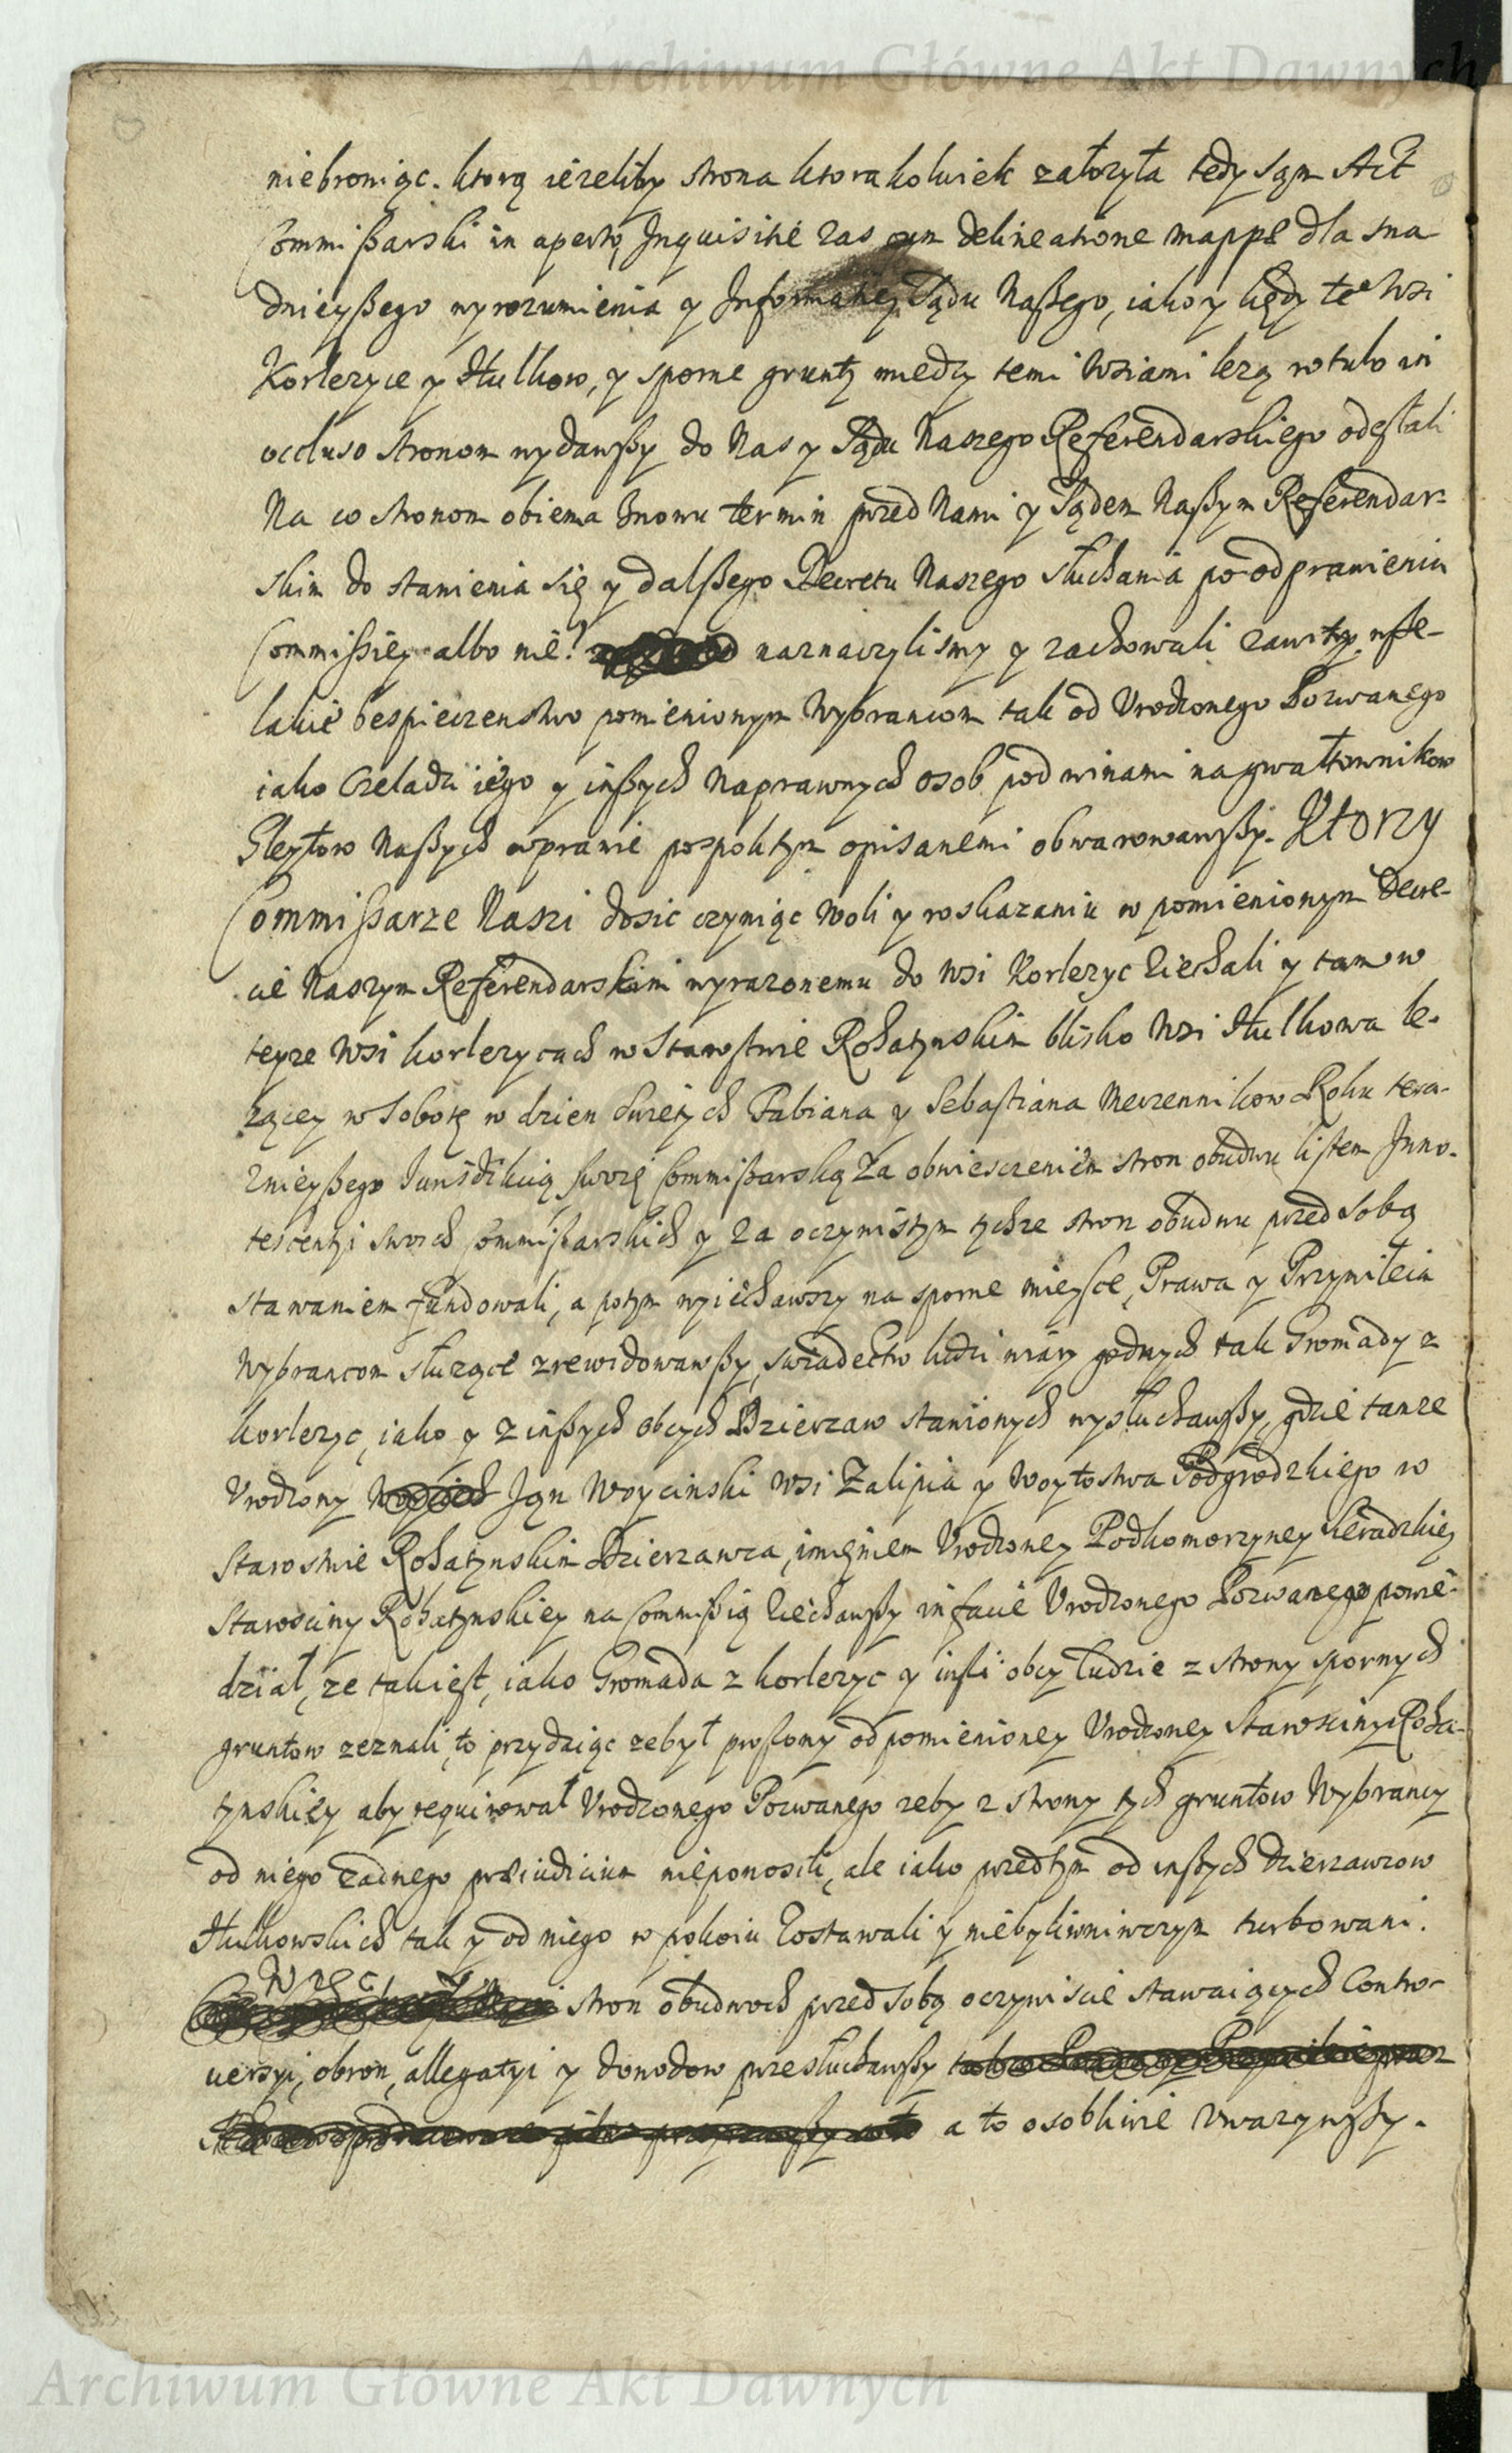 Archiwum Główne Akt Dawnych
niebroniąc. ktorą ieżeliby strona ktorakolwiek założyła tedy sąm Act
Commißarski in aperto, Inquisitie zas cum delineatione mappę dla sna
dnieyßego wyrozumienia y Informatiey Sądu Naßego, iako y kędy te Wsi
Korlezyce y Hulkow, y sporne grunty między temi Wsiami leżą rotulo in
occluso stronom wydawßy do Nas y Sądu Naszego Referendarskiego odesłali
Na co stronom obiema znowu termin przed Nami y Sądem Naßym Referendar-
skim do stawienia się y dalßego Decretu Naszego słuchania po odprawieniu
Commißiey albo nie? naznaczylismy y zachowali zawity, wße-
lakie bespieczenstwo pomienionym Wybrancom tak od Vrodzonego Pozwanego
iako Czeladzi iego y inßych Naprawnych osob pod winami na gwałtownikow
Gleytow Naßych w prawie pospolitym opisanemi obwarowawßy. Ktorzy
Commißarze Naszi dosic czyniąc Woli y roskazaniu w pomienionym Decre-
cie Naszym Referendarskim wyrazonemu do Wsi Korlezyc ziechali y tam w
teyze Wsi korlezycach w Starostwie Rohatynskim blisko Wsi Hulkowa le-
żącey w Sobotę w dzien Swiętych Fabiana y Sebastiana Meczennikow Roku tera-
znieyßego Iurisdikcią swoię Commißarską Za obwiesczeniem stron obudwu listem Inno-
tescentyi swoich Commißarskich y za oczywistym tychże stron obudwu przed sobą
stawaniem fundowali, a potym wyiechawszy na sporne mieysce, Prawa y Przywileia
Wybrancom służące zrewidowawßy, swiadectw ludzi wiary godnych tak Gromady z
korlezyc, iako y z inßych obcych Dzierzaw stawionych wysłuchawßy, gdzie tamże
Vrodzony Ian Woycinski Wsi Zalipia y Woytostwa Podgrodzkiego w
Starostwie Rohatynskim Dzierzawca, imięniem Vrodzoney Podkomorzyney Sieradzkiey
Starosciny Rohatynskiey na Commißią ziechawßy in facie Vrodzonego Pozwanego powie-
dział, ze tak iest, iako Gromada z korlezyc y inßi obcy ludzie z strony spornych
gruntow zeznali, to przydaiąc ze był proszony od pomienioney Vrodzoney Starosciny Roha-
tynskiey aby requirował Vrodzonego Pozwanego zeby z strony tych gruntow Wybrancy
od niego żadnego praeiudicium nieponosili, ale iako przedtym od inßych Dzierzawcow
Hulkowskich tak y od niego w pokoiu zostawali y niebyli w niwczym turbowani.
Więc stron obudwoch przed sobą oczywiscie stawaiących Contro-
uersyi, obron, allegatyi y dowodow przesłuchawßy
a to osobliwie vwazywßy.
Archiwum Główne Akt Dawnych